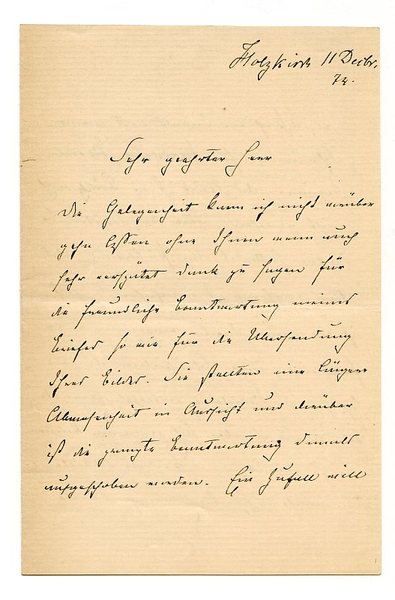 Holzkirch 11 Decbr.
74.
Sehr geehrter Herr
Die Gelegenheit kann ich nicht vorüber
gehn lassen ohne Ihnen wenn auch
sehr verspätet Dank zu sagen für
die freundliche Beantwortung meines
Briefes so wie für die Übersendung
Ihres Bildes. Sie stellten eine längere
Abwesenheit in Aussicht und darüber
ist die Beantwortung damals
aufgeschoben worden. Ein Zufall will